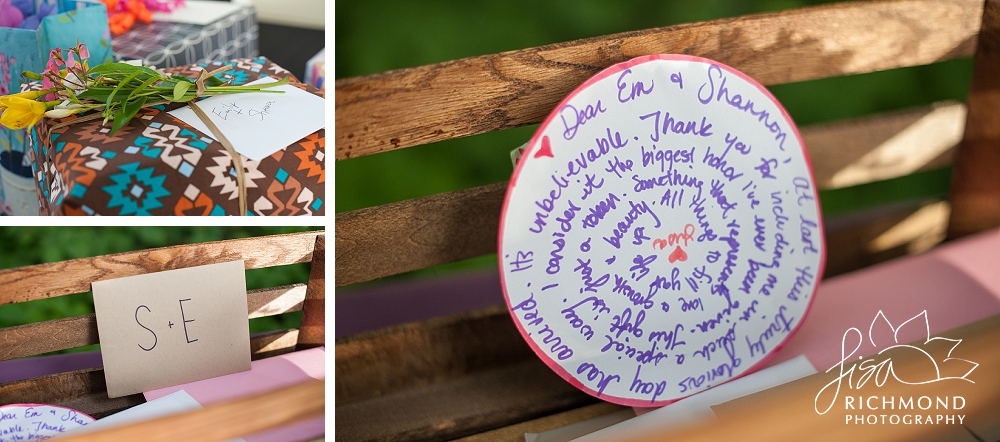 Emily
& Shannon
S + E
Dear Em & Shan
Dear Em & Shannon, at last this truly glorious day has arrived. It's
unbelievable. Thank you for including me in such a special way. I
consider it the biggest honor I've ever been given. This gift is just a token.
Something that represents love & growth &
beauty. All things to fill your
Lisa
RICHMOND
PHOTOGRAPHY